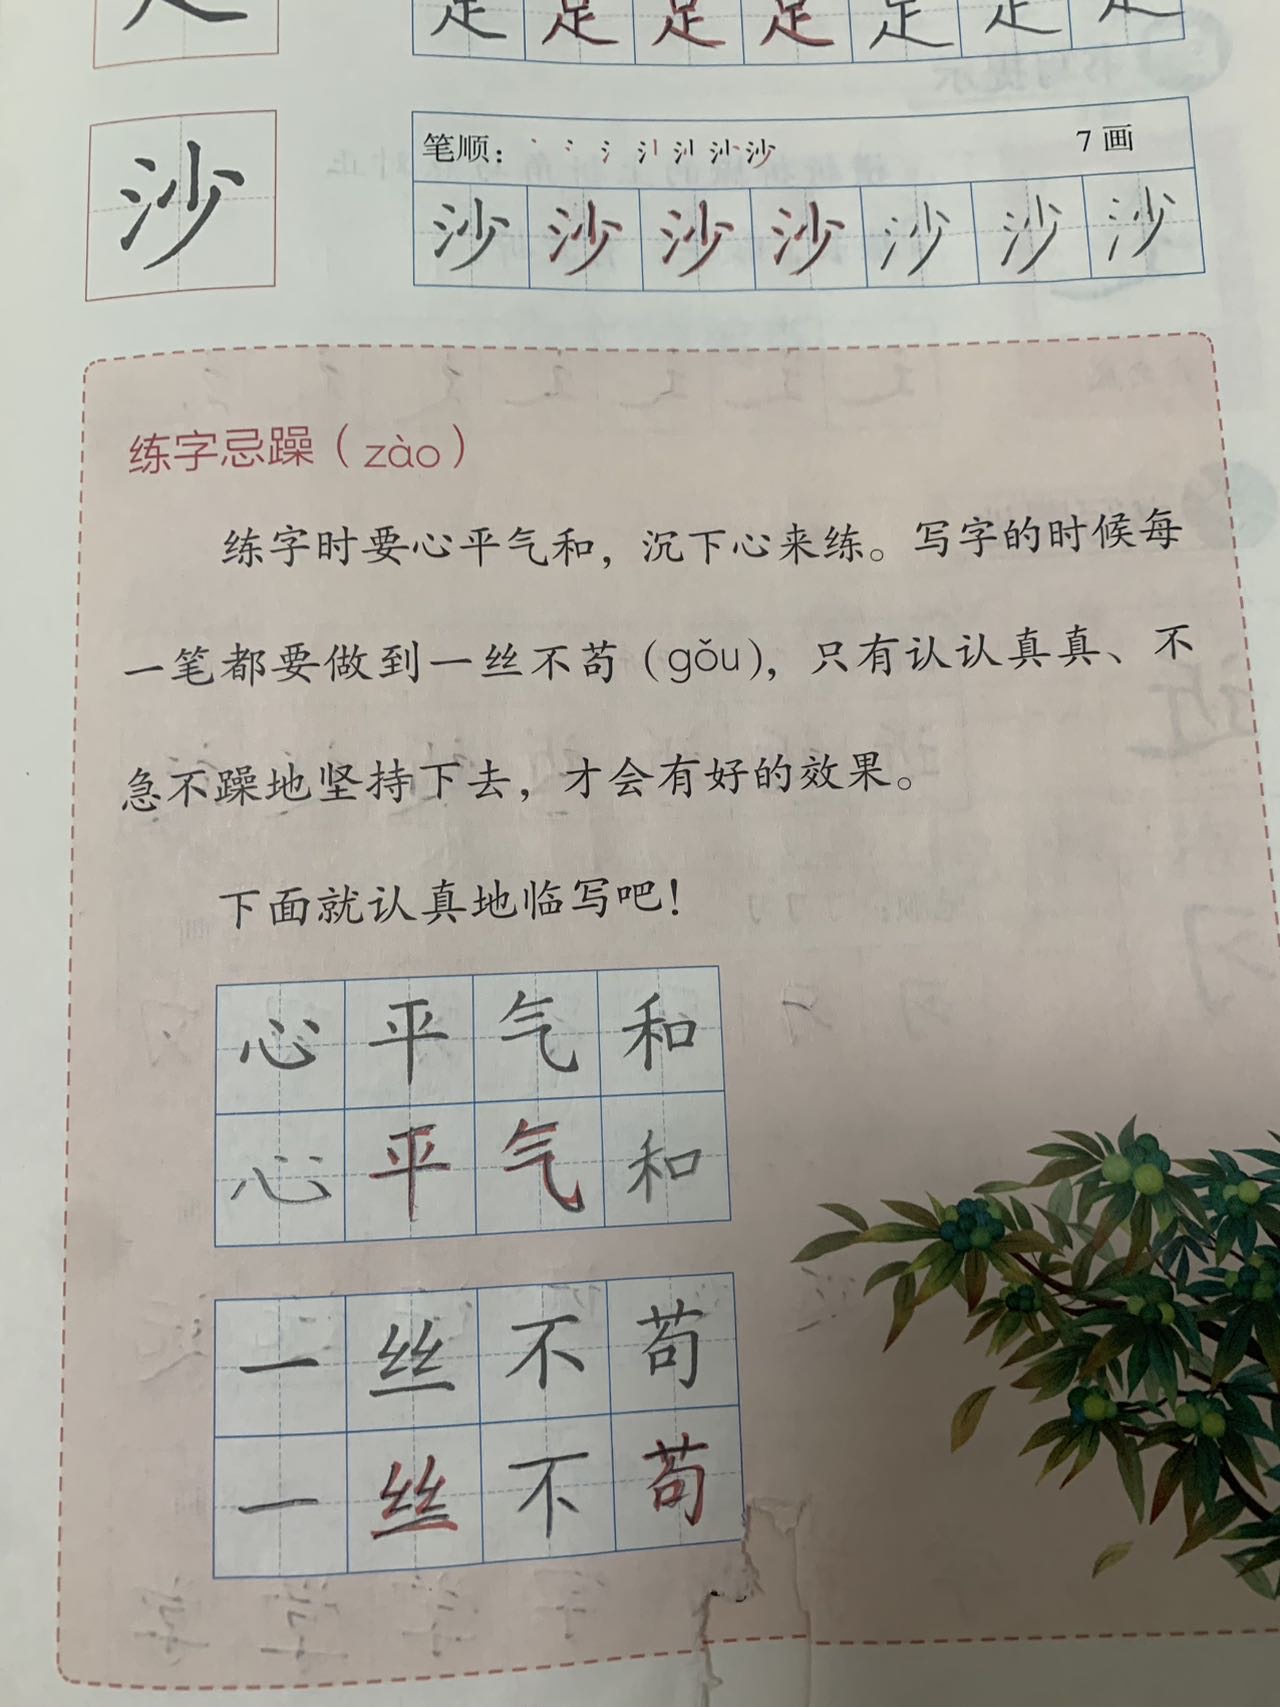 足足足足足足足
沙
笔顺： 7画
沙沙沙沙沙沙沙
练字忌躁（zào）
练字时要心平气和，沉下心来练。写字的时候每
一笔都要做到一丝不苟（gǒu），只有认认真真、不
急不躁地坚持下去，才会有好的效果。
下面就认真地临写吧！
心平气和
心平气和
一丝不苟
一丝不苟